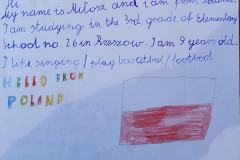 Hi
My name is Miłosz and i am from
I am studying in the 3rd grade of Elementary
School no. 26 in Rzeszow. I am 9 years old.
I like singing / play basketball / football
HELLO FROM
POLAND